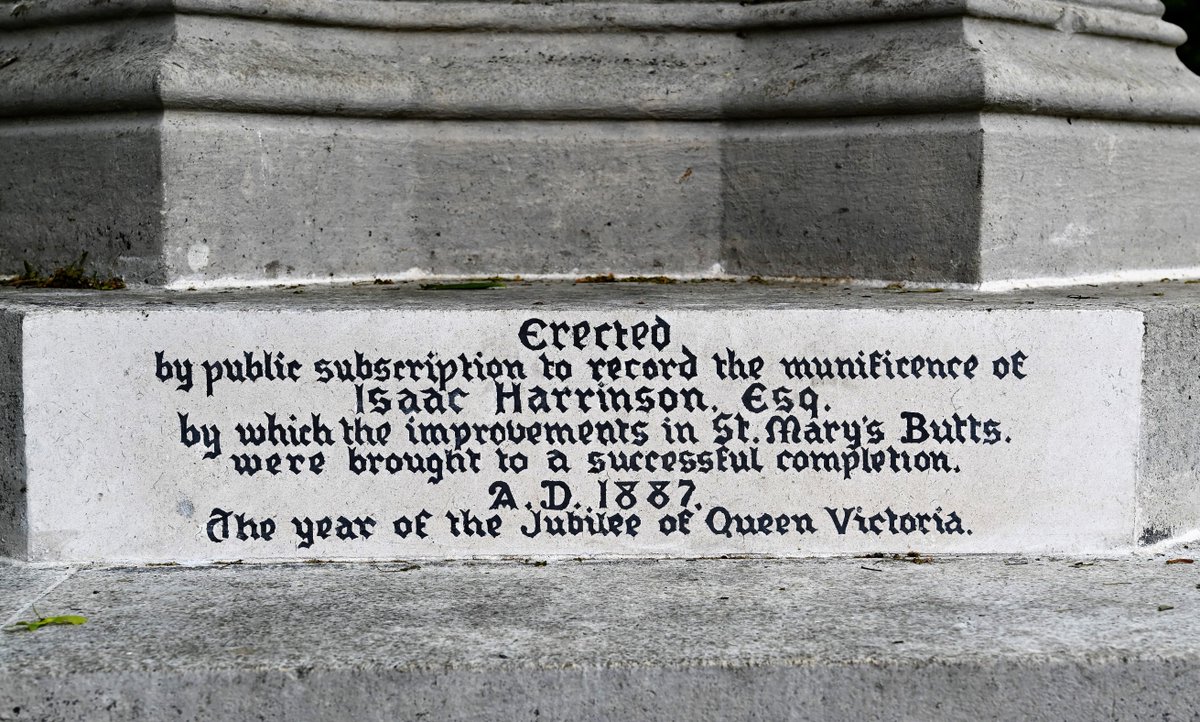 Erected
by public subscription to record the munificence of
Isaac Harrinson, Esq.
by which the improvements in St. Mary's Butts.
were brought to a successful completion.
A.D. 1887.
The year of the Jubilee of Queen Victoria.